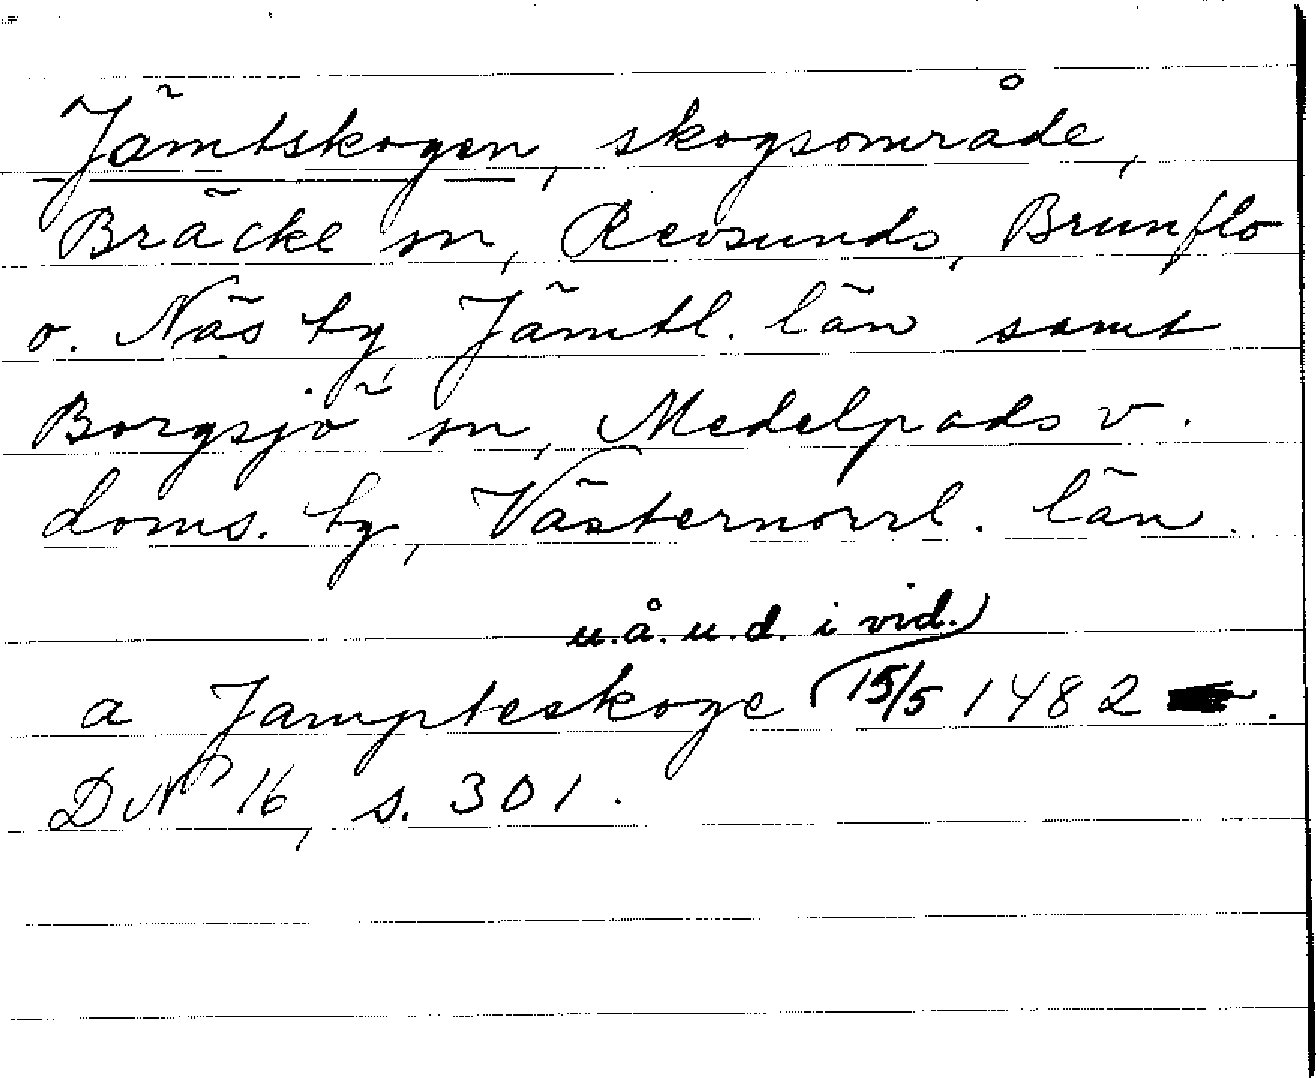 Jämtskogen, skogsområde,
Bräcke sn, Revsunds, Brunflo
o. Näs tg Jämtl. län samt
Borgsjö sn, Medelpads v.
doms. tg, Västernorrl. län.
u.å. u.d. i vid.
a Jampteskoge 15/5 1482.
DN 16, s. 301.